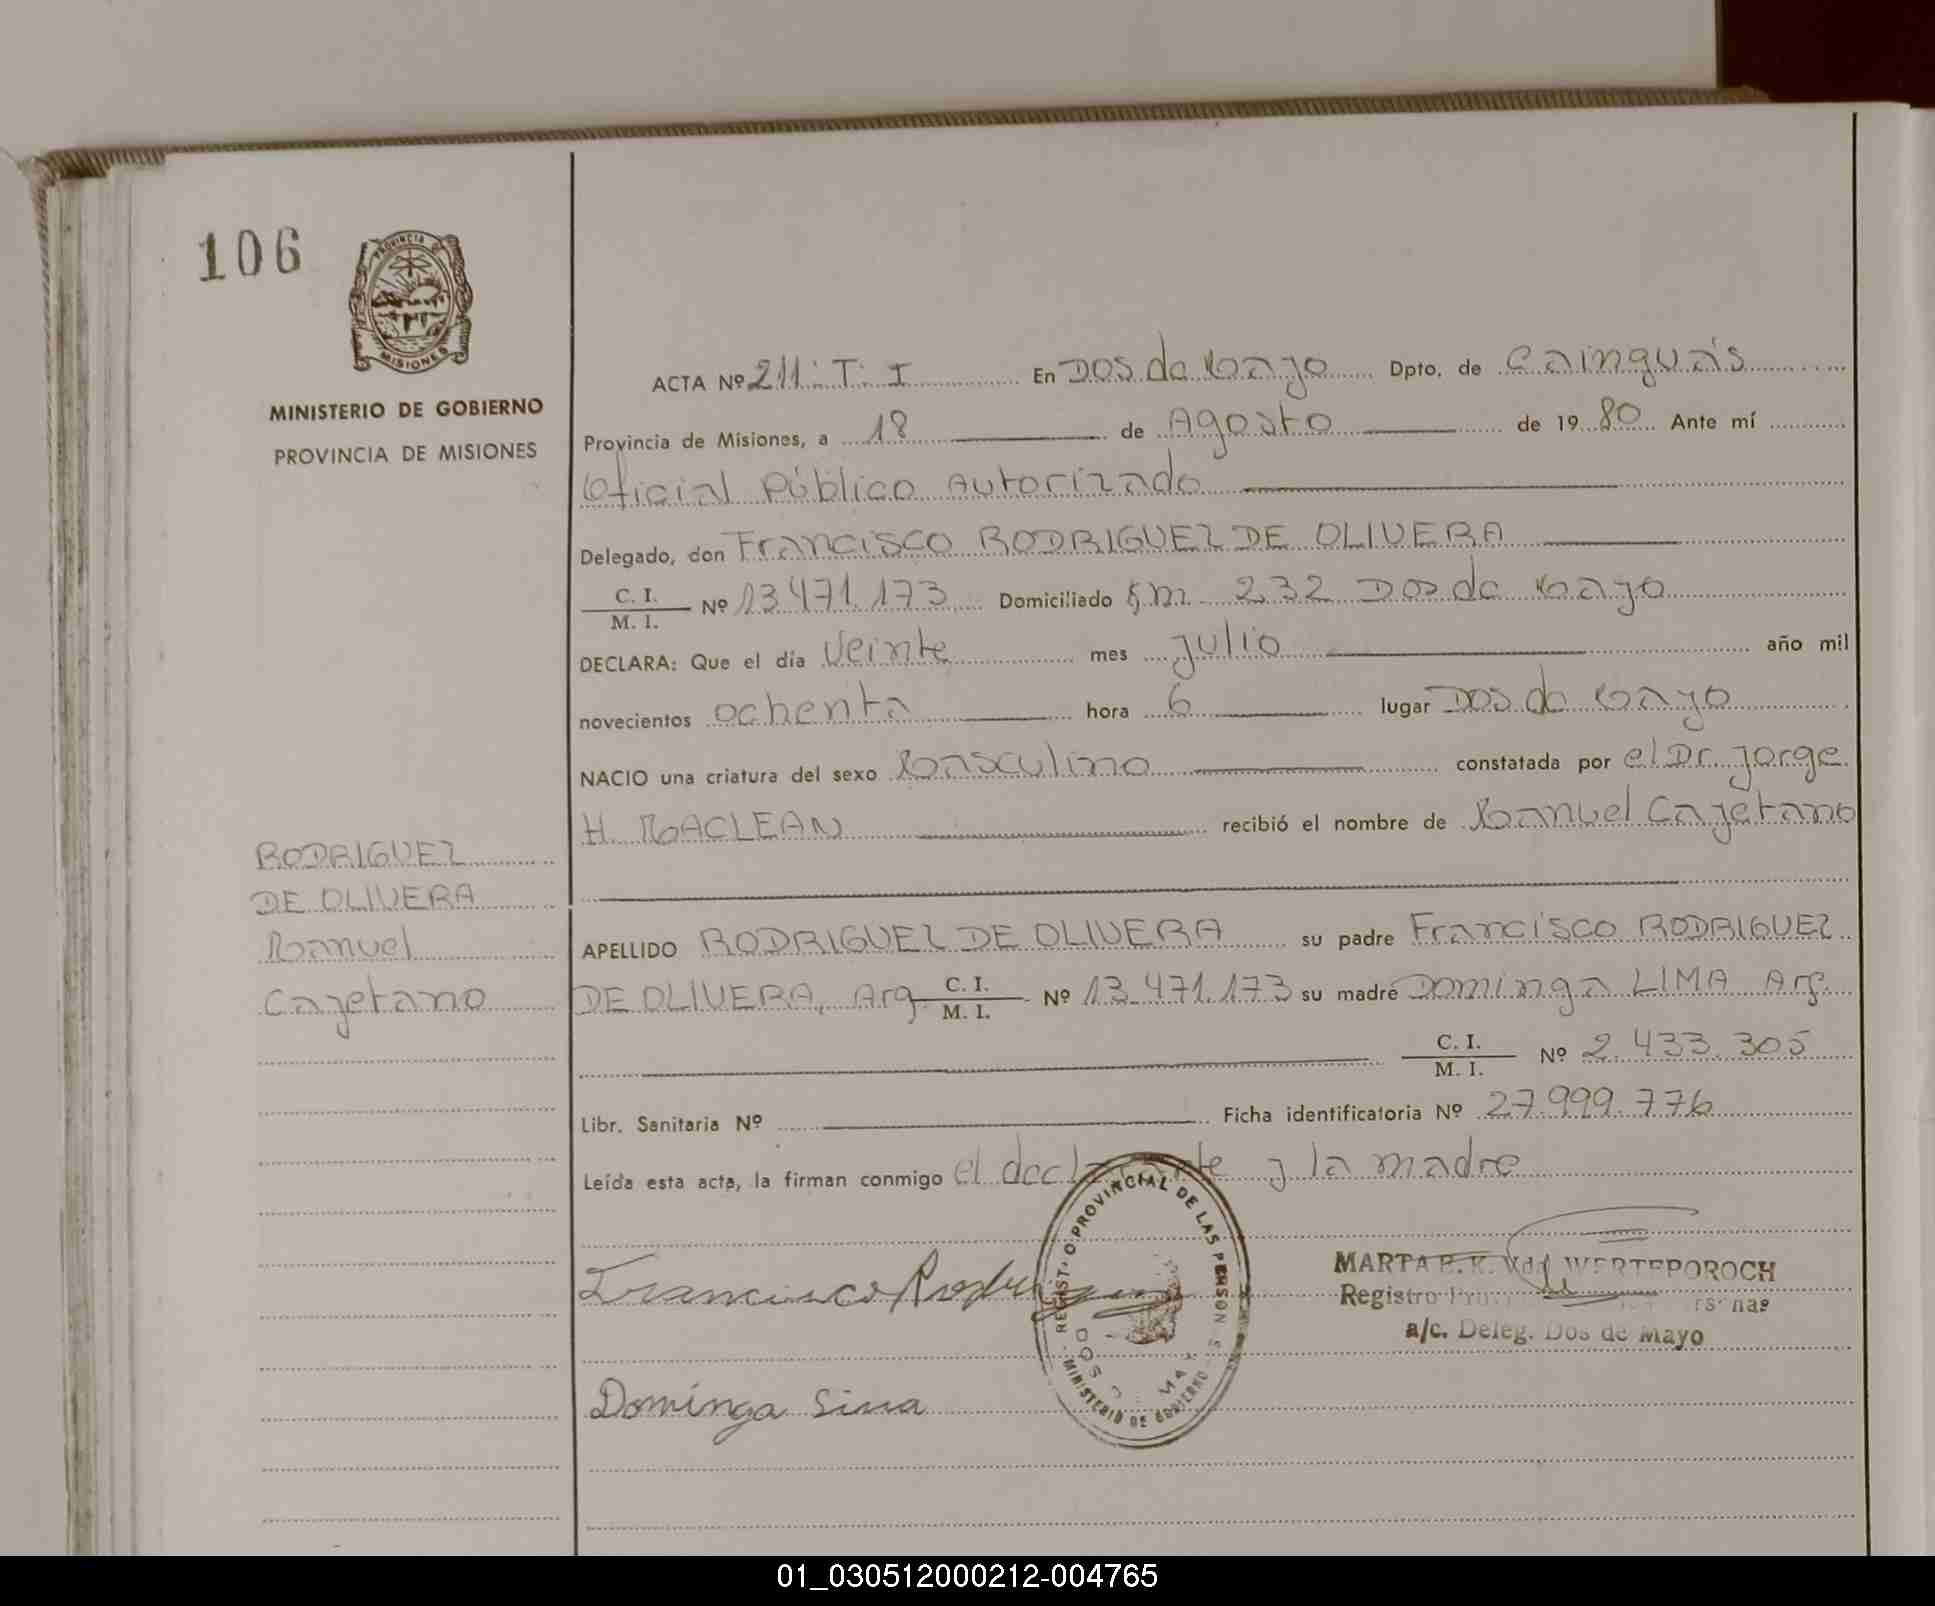 106
PROVINCIA
MISIONES
MINISTERIO DE GOBIERNO
PROVINCIA DE MISIONES
RODRIGUEZ
DE OLIVERA
Manuel
Cayetano
ACTA Nº 211: T: I En Dos de Mayo Dpto. de Cainguás
Provincia de Misiones, a 18 de Agosto de 1980 Ante mí
Oficial Público Autorizado
Delegado, don Francisco RODRIGUEZ DE OLIVERA
C. I.
M. I. Nº 13.471.173 Domiciliado km 232 Dos de Mayo
DECLARA: Que el día Veinte mes Julio año mil
novecientos ochenta hora 6 lugar Dos de Mayo
NACIO una criatura del sexo Masculino constatada por el Dr. Jorge
H. MACLEAN recibió el nombre de Manuel Cayetano
APELLIDO RODRIGUEZ DE OLIVERA su padre Francisco RODRIGUEZ
DE OLIVERA, Arg C. I. M. I. Nº 13.471.173 su madre Dominga LIMA Arg.
C. I.
M. I. Nº 2.433.305
Libr. Sanitaria Nº Ficha identificatoria Nº 27.999.776
Leída esta acta, la firman conmigo el declarante y la madre
Francisco Rodriguez
MARTA B. K. Vda WERTEPOROCH
Registro
a/c. Deleg. Dos de Mayo
REGISTRO PROVINCIAL DE LAS PERSONAS
DOS DE MAYO
MINISTERIO DE GOBIERNO
Dominga Lima
01_030512000212-004765